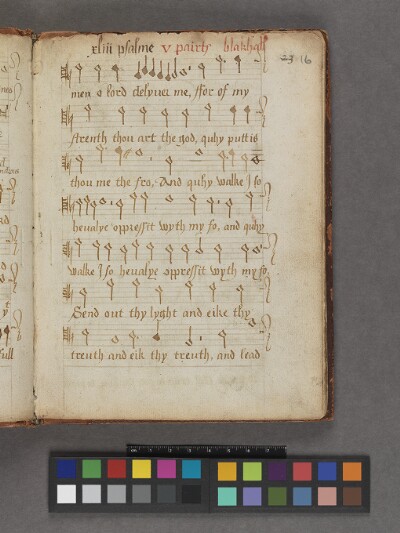 xliii psalme v pairts blakhall
23 16
men o lord delyuer me, ffor of my
strenth thou art the god, quhy puttis
thou me the fro, And quhy walke I so
heualye oppressit wyth my fo, and quhy
walke I so heualye oppressit wyth my fo,
Send out thy lyght and eike thy
treuth and eik thy treuth, and lead